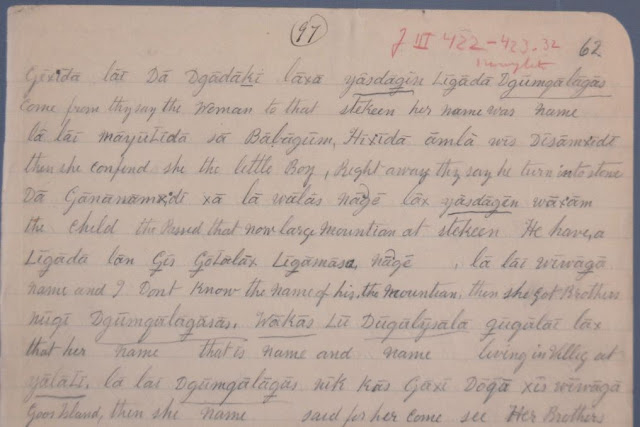 97
J III 422-423.32
62
Gēxīda lāī Dā Dgādāḵi lāxa yāsdagīsē Līgādā Dgūmgālāgās
Come from thy say the woman to that stekeen her name was name
lā lāī māyūlīdā sā Bābāgūm, Hīxīdā āmlā wīs Dīsāmxīdī
then she confend she the little Boy, Right away thy say he turn into stone
Dā Gānānamxīdī xā lā wālās nagē lāx yāsdagīn wāxām
the child the Passed that now large mountian at stekeen He have, a
Līgādā lān Gīs Gotalāx Līgāmāsa, nāgē , lā lāī wīwāgā
name and I Dont Know the name of his, the mountian, then she Got Brothers
nūgī Dgūmgālāgāsās, Wākās Lū Dūgālysala gūgālaī lāx
that her name that is name and name living in villig at
yālātī, lā lāī Dgūmgālāgās nīk Kās Gāxī Dōgā xīs wīwāgā
Goos Island, then she name said for her come see Her Brothers